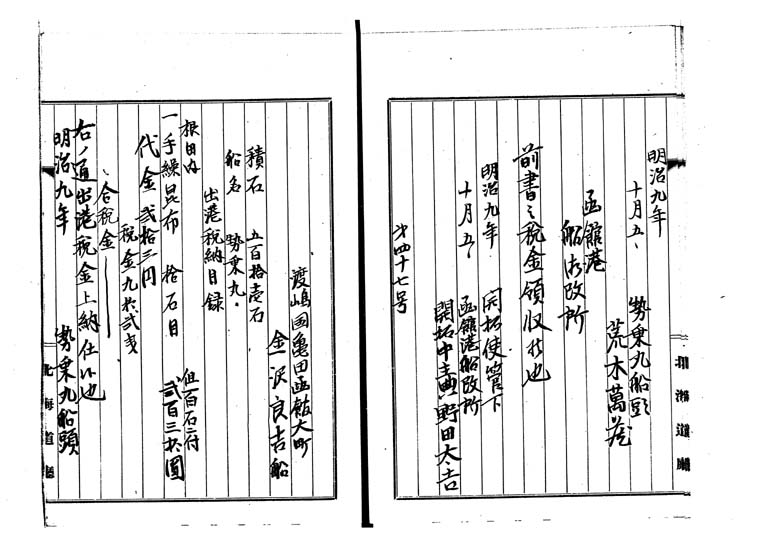 明治九年
十月五、
勢乗九船頭
荒木萬蔵
函館港
船改所
前書之税金領収候也
明治九年
十月五、
開拓使管下
函館港船改所
開拓中主典野田大吉
第四十七号
渡嶋国亀田函館大町
金沢良吉船
積石 五百拾壱石
船名 勢乗丸
出港税納目録
根田内
一手繰昆布 拾石目
但百石ニ付
弐百三十圓
代金弐拾三円
税金九十弐戔
合税金
右ノ通出港税金上納仕候也
明治九年
勢乗丸船頭
北海道廳